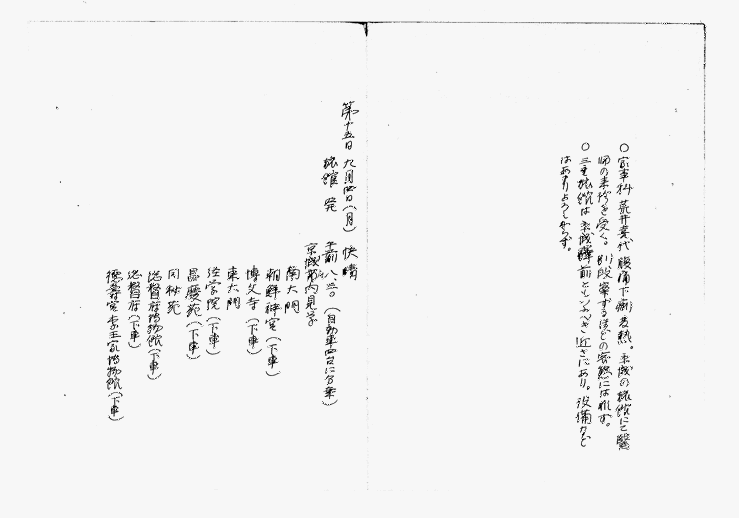 ○ 家事科 荒井喜代 腹痛下痢発熱。京城の旅館にて醫
師の来診を受く。別段案ずるほどの容態には非ず。
○ 三重旅館は京城驛前ともいふべき近さにあり。設備など
はあまりよろしからず。
第十五日 九月四日(月) 快晴
旅館 発 午前八、三〇 (自動車四台に分乗)
京城市内見学
南大門
朝鮮神宮(下車)
博文寺(下車)
東大門
経学院(下車)
昌慶苑(下車)
同秘苑
總督府博物館(下車)
總督府(下車)
德壽宮李王家博物館(下車)